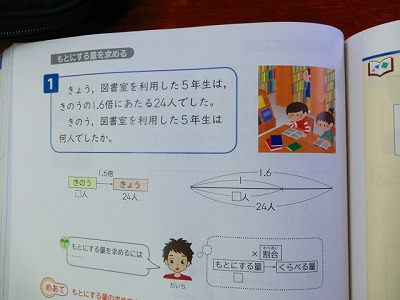 もとにする量を求める
1
きょう，図書室を利用した5年生は，
きのうの1.6倍にあたる24人でした。
きのう，図書室を利用した5年生は
何人でしたか。
1.6倍
きのう
きょう
□人
24人
1.6
1
□人
24人
もとにする量を求めるには
……
だいち
わりあい
×割合
もとにする量
くらべる量
□
めあて